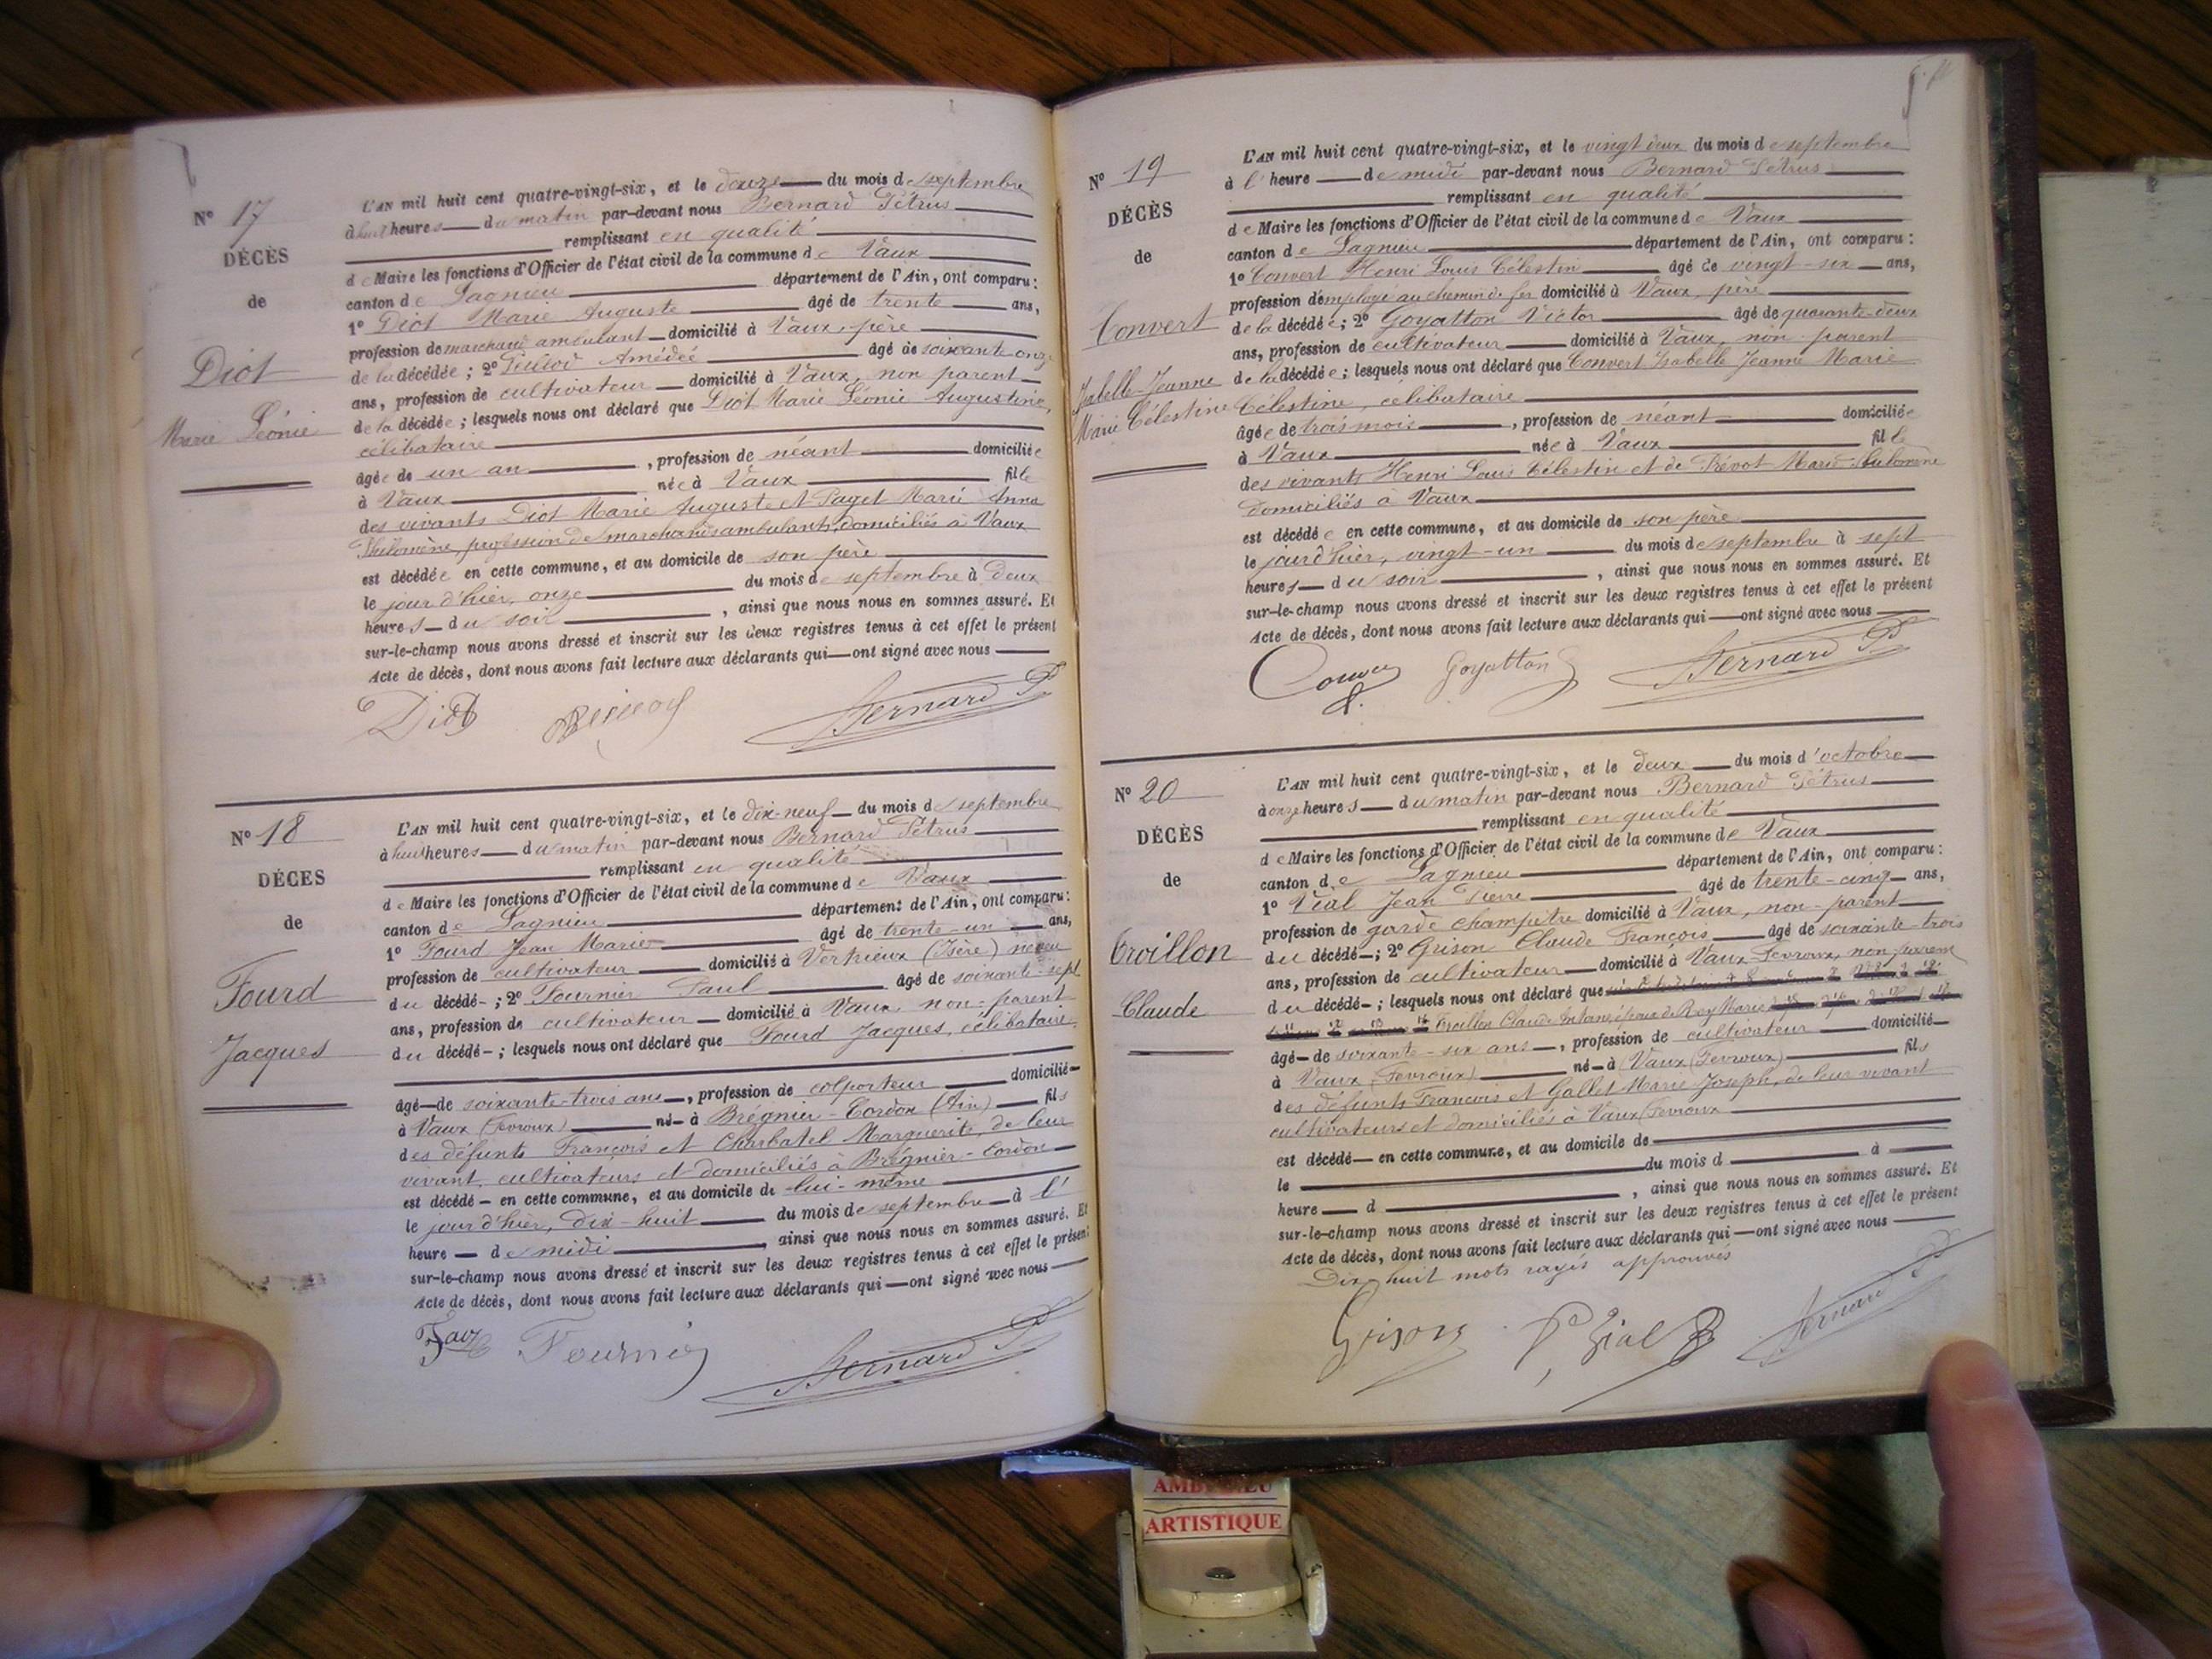 N° 17
DÉCÈS
de
Diot
Marie Léonie
L'AN mil huit cent quatre-vingt-six, et le douze du mois de septembre
à huit heures du matin par-devant nous Bernard Pétrus
remplissant en qualité
de Maire les fonctions d'Officier de l'état civil de la commune de Vaux
canton de Lagnieu département de l'Ain, ont comparu :
1° Diot Marie Auguste âgé de trente ans,
profession de marchand ambulant domicilié à Vaux, père
de la décédée ; 2° Amédée âgé de soixante onze
ans, profession de cultivateur domicilié à Vaux, non parent
de la décédée ; lesquels nous ont déclaré que Diot Marie Léonie Augustine,
célibataire
âgée de un an , profession de néant domiciliée
à Vaux née à Vaux fille
des vivants Diot Marie Auguste et Paget Marie Anna
Philomène, profession de marchands ambulants, domiciliés à Vaux
est décédée en cette commune, et au domicile de son père
le jour d'hier, onze du mois de septembre à deux
heures du soir , ainsi que nous nous en sommes assuré. Et
sur-le-champ nous avons dressé et inscrit sur les deux registres tenus à cet effet le présent
Acte de décès, dont nous avons fait lecture aux déclarants qui ont signé avec nous
Diot Bernard P
N° 18
DÉCES
de
Fourd
Jacques
L'AN mil huit cent quatre-vingt-six, et le dix-neuf du mois de septembre
à huit heures du matin par-devant nous Bernard Pétrus
remplissant en qualité
de Maire les fonctions d'Officier de l'état civil de la commune de Vaux
canton de Lagnieu département de l'Ain, ont comparu :
1° Fourd Jean Marie âgé de trente-un ans,
profession de cultivateur domicilié à Vertrieux (Isère) neveu
du décédé ; 2° Fournier Paul âgé de soixante-sept
ans, profession de cultivateur domicilié à Vaux, non-parent
du décédé ; lesquels nous ont déclaré que Fourd Jacques, célibataire
âgé de soixante-trois ans , profession de colporteur domicilié
à Vaux (Fevroux) né à Brégnier-Cordon (Ain) fils
des défunts François et Charbatel Marguerite, de leur
vivant, cultivateurs et domiciliés à Brégnier-Cordon
est décédé en cette commune, et au domicile de lui-même
le jour d'hier, dix-huit du mois de septembre à l'
heure de midi , ainsi que nous nous en sommes assuré. Et
sur-le-champ nous avons dressé et inscrit sur les deux registres tenus à cet effet le présent
Acte de décès, dont nous avons fait lecture aux déclarants qui ont signé avec nous
Fournier Bernard P
N° 19
DÉCÈS
de
Convert
Isabelle-Jeanne
Marie Célestine
L'AN mil huit cent quatre-vingt-six, et le vingt deux du mois de septembre
à l'heure de midi par-devant nous Bernard Pétrus
remplissant en qualité
de Maire les fonctions d'Officier de l'état civil de la commune de Vaux
canton de Lagnieu département de l'Ain, ont comparu :
1° Convert Henri Louis Célestin âgé de vingt-six ans,
profession d'employé au chemin de fer domicilié à Vaux, père
de la décédée ; 2° Goyatton Victor âgé de quarante-deux
ans, profession de cultivateur domicilié à Vaux, non parent
de la décédée ; lesquels nous ont déclaré que Convert Isabelle Jeanne Marie
Célestine, célibataire
âgée de trois mois , profession de néant domiciliée
à Vaux née à Vaux fille
des vivants Henri Louis Célestin et de Prévot Marie Philomène
domiciliés à Vaux
est décédée en cette commune, et au domicile de son père
le jour d'hier, vingt-un du mois de septembre à sept
heures du soir , ainsi que nous nous en sommes assuré. Et
sur-le-champ nous avons dressé et inscrit sur les deux registres tenus à cet effet le présent
Acte de décès, dont nous avons fait lecture aux déclarants qui ont signé avec nous
Goyatton Bernard P
N° 20
DÉCÈS
de
Croillon
Claude
L'AN mil huit cent quatre-vingt-six, et le deux du mois d'octobre
à onze heures du matin par-devant nous Bernard Pétrus
remplissant en qualité
de Maire les fonctions d'Officier de l'état civil de la commune de Vaux
canton de Lagnieu département de l'Ain, ont comparu :
1° Vial Jean Pierre âgé de trente-cinq ans,
profession de garde champêtre domicilié à Vaux, non-parent
du décédé ; 2° Grison Claude François âgé de soixante-trois
ans, profession de cultivateur domicilié à Vaux-Fevroux, non parent
du décédé ; lesquels nous ont déclaré que
Croillon Claude Antoine époux de Roy Marie
âgé de soixante-six ans , profession de cultivateur domicilié
à Vaux (Fevroux) né à Vaux (Fevroux) fils
des défunts François et Gallet Marie Joseph, de leur vivant
cultivateurs et domiciliés à Vaux (Fevroux
est décédé en cette commune, et au domicile de
le du mois d à
heure d , ainsi que nous nous en sommes assuré. Et
sur-le-champ nous avons dressé et inscrit sur les deux registres tenus à cet effet le présent
Acte de décès, dont nous avons fait lecture aux déclarants qui ont signé avec nous
Dix-huit mots rayés approuvés
Grison Vial Bernard P
ARTISTIQUE